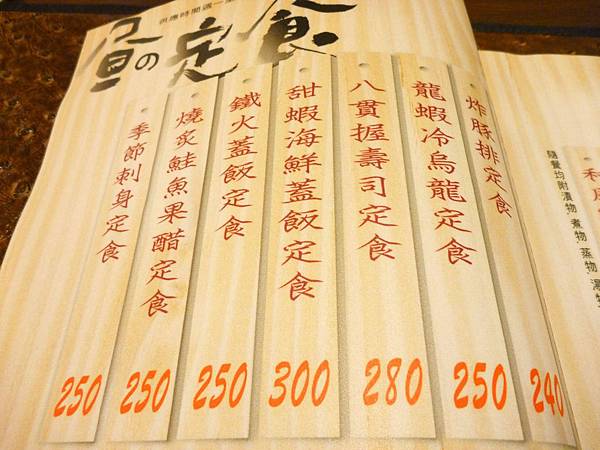 供應時間週一
昼の定食
炸豚排定食
240
龍蝦冷烏龍定食
250
八貫握壽司定食
280
甜蝦海鮮蓋飯定食
300
鐵火蓋飯定食
250
燒炙鮭魚果醋定食
250
季節刺身定食
250
隨餐均附漬物 煮物 蒸物